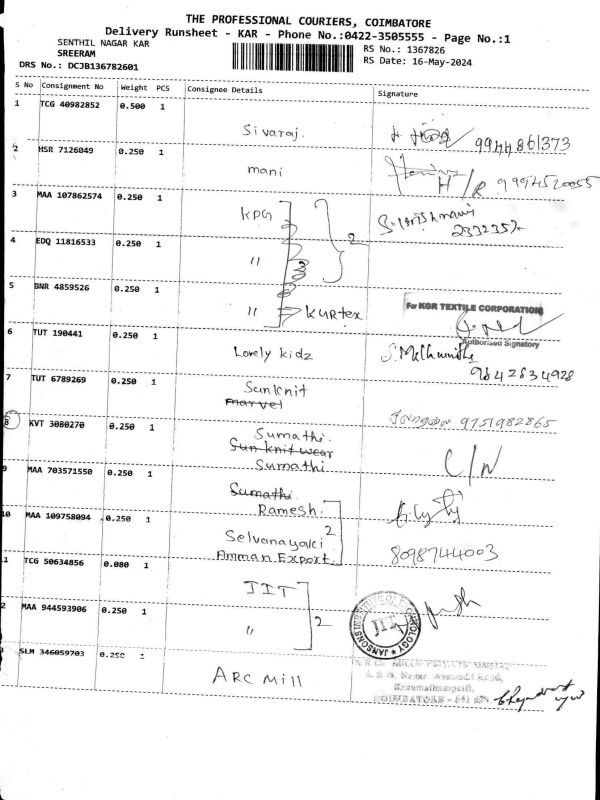 THE PROFESSIONAL COURIERS, COIMBATORE
Delivery Runsheet - KAR - Phone No.:0422-3505555 - Page No.:1
SENTHIL NAGAR KAR
SREERAM
RS No.: 1367826
DRS No.: DCJB136782601
RS Date: 16-May-2024
S No Consignment No Weight PCS Consignee Details Signature
1 TCG 40982852 0.500 1
Sivaraj. 9944861373
2 HSR 7126049 0.250 1
mani H/R 9994520055
3 MAA 107862574 0.250 1
KPG 2
4 EDQ 11816533 0.250 1
〃
5 BNR 4859526 0.250 1
〃 Kurtex
For KGR TEXTILE CORPORATION
Authorised Signatory
6 TUT 190441 0.250 1
Lovely kidz
9842834928
7 TUT 6789269 0.250 1
Sunknit
marvel
9751982865
8 KVT 3080270 0.250 1
Sumathi.
Sun knit wear
Sumathi
C/N
9 MAA 703571550 0.250 1
Sumathi.
Ramesh.
10 MAA 109758094 0.250 1
Selvanayaki 2
Amman Export.
8098744003
1 TCG 50634856 0.080 1
JIT
2 MAA 944593906 0.250 1
〃 2
JIT
3 SLM 346059703 0.250 1
ARC Mill
COIMBATORE